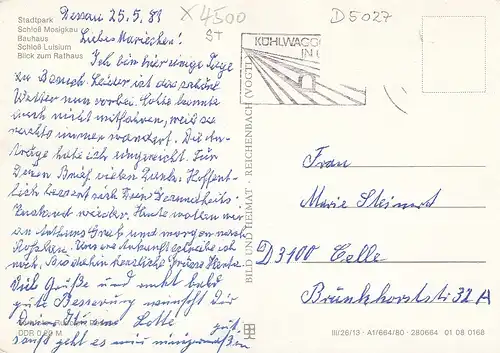 Stadtpark
Schloß Mosigkau
Bauhaus
Schloß Luisium
Blick zum Rathaus
Dessau 25.5.83
X 4500
ST
D 5027
Liebes Mariechen!
Ich bin hier einige Tage
zu Besuch. Leider ist das schöne
Wetter nun vorbei. Lotte konnte
auch nicht mitfahren, weil sie
nachts immer wandert. Die An-
träge habe ich eingereicht. Für
Deinen Brief vielen Dank. Hoffent-
lich bessert sich Dein Gesundheits-
Zustand wieder. Heute wollen wir
an Grab und morgen nach
Roßlau. Unsere Ankunft schreibe ich
noch. Bis dahin herzliche Grüße Herta
Viele Grüße und recht bald
gute Besserung wünscht Dir
Deine Lotte
gut,
sonst geht es mir
DDR 0,60 M
KÜHLWAGG
IN
BILD UND HEIMAT · REICHENBACH (VOGTL)
Frau
Marie Steinert
D 3100 Celle
Brunkhorststr. 32 A
III/26/13 · A1/664/80 · 280664 01 08 0168